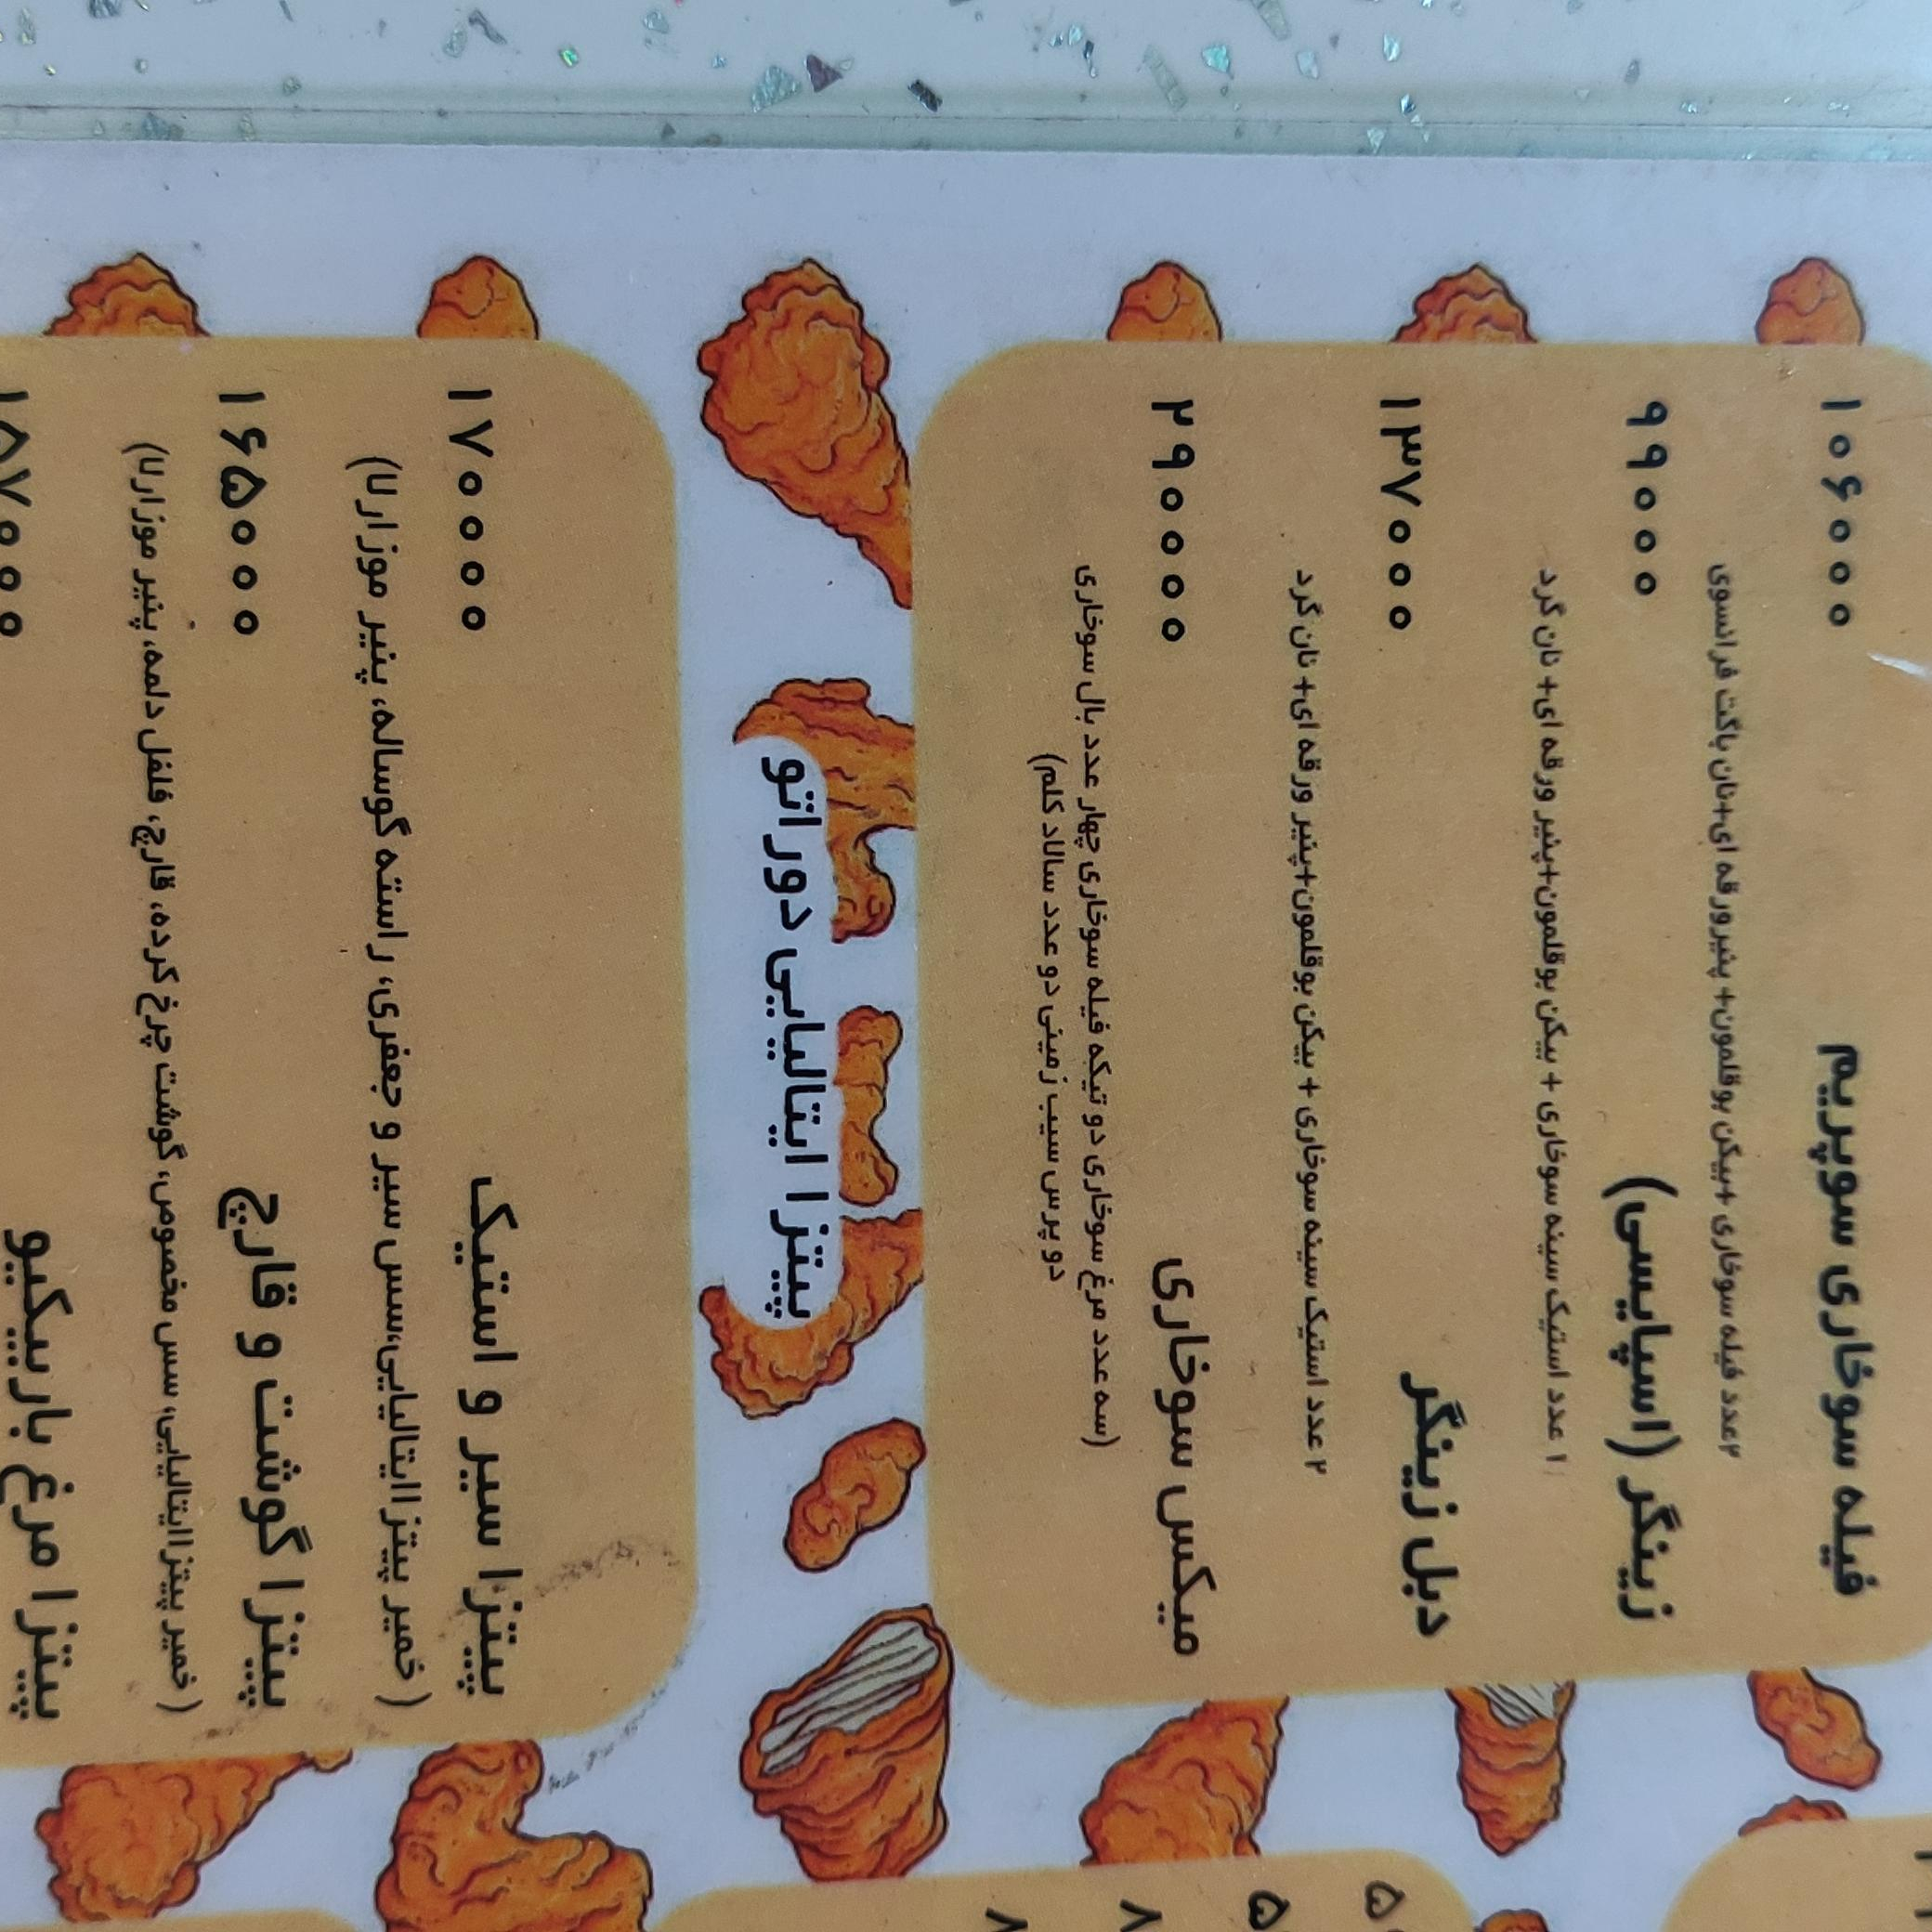 فیله سوخاری سوپریم ۱۰۶۰۰۰
۲عدد فیله سوخاری +بیکن بوقلمون+ پنیرورقه ای+نان باگت فرانسوی
زینگر (اسپایسی) ۹۹۰۰۰
۱ عدد استیک سینه سوخاری + بیکن بوقلمون+پنیر ورقه ای+ نان گرد
دبل زینگر ۱۳۷۰۰۰
۲ عدد استیک سینه سوخاری + بیکن بوقلمون+پنیر ورقه ای+ نان گرد
میکس سوخاری ۲۹۰۰۰۰
(سه عدد مرغ سوخاری دو تیکه فیله سوخاری چهار عدد بال سوخاری
دو پرس سیب زمینی دو عدد سالاد کلم)
پیتزا ایتالیایی دوراتو
پیتزا سیر و استیک ۱۷۰۰۰۰
( خمیر پیتزا ایتالیایی،سس سیر و جعفری، راسته گوساله، پنیر موزارلا)
پیتزا گوشت و قارچ ۱۶۵۰۰۰
( خمیر پیتزا ایتالیایی، سس مخصوص، گوشت چرخ کرده، قارچ، فلفل دلمه، پنیر موزارلا)
پیتزا مرغ باربیکیو ۱۵۷۰۰۰